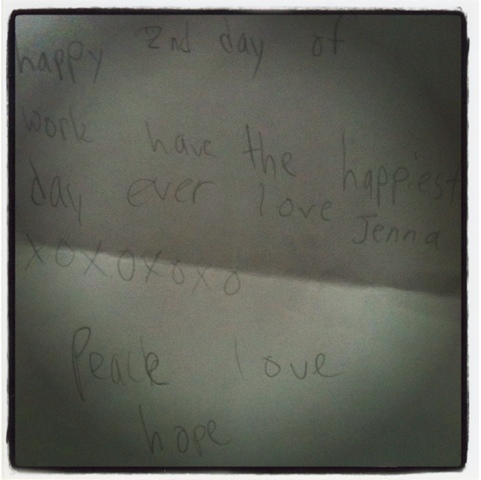 happy 2nd day of
work have the happiest
day ever love Jenna
xoxoxoxo
Peace love
hope